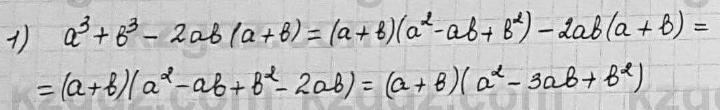 1) a³ + b³ - 2ab(a+b) = (a+b)(a² - ab + b²) - 2ab(a+b) =
= (a+b)(a² - ab + b² - 2ab) = (a+b)(a² - 3ab + b²)